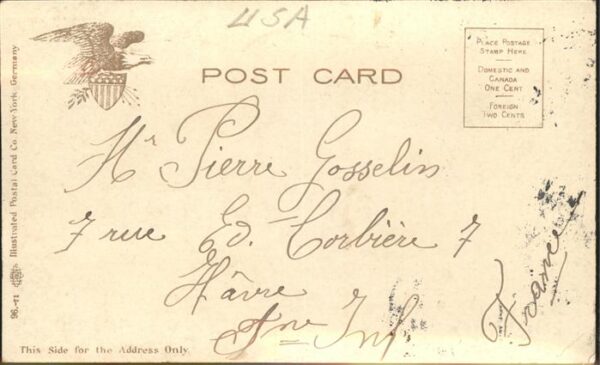 USA
POST CARD
PLACE POSTAGE
STAMP HERE
DOMESTIC AND
CANADA
ONE CENT
FOREIGN
TWO CENTS
Mr Pierre Gosselin
7 rue Ed. Corbière 7
Hâvre
Sne Inf
France
This Side for the Address Only
Illustrated Postal Card Co. New York, Germany